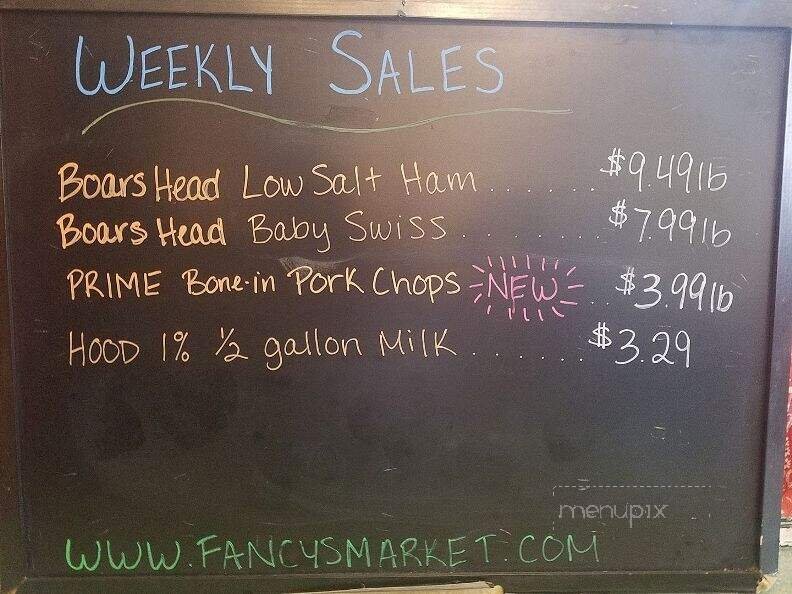 WEEKLY SALES
Boars Head Low Salt Ham ...... $9.49lb
Boars Head Baby Swiss ....... $7.99lb
PRIME Bone-in Pork Chops NEW .. $3.99lb
HOOD 1% 1/2 gallon Milk ....... $3.29
menupix
WWW.FANCYSMARKET.COM